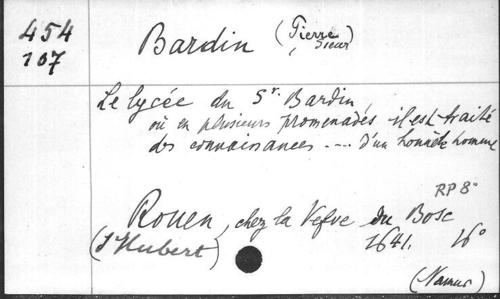 454
107
Bardin (Pierre, Sieur)
Le lycée du Sr. Bardin,
où en plusieurs promenades il est traité
des connaissances .... d'un honnête homme
RP 8°
Rouen, chez la Vefve du Bosc
(St Hubert) 1641. 16°
(Namur)